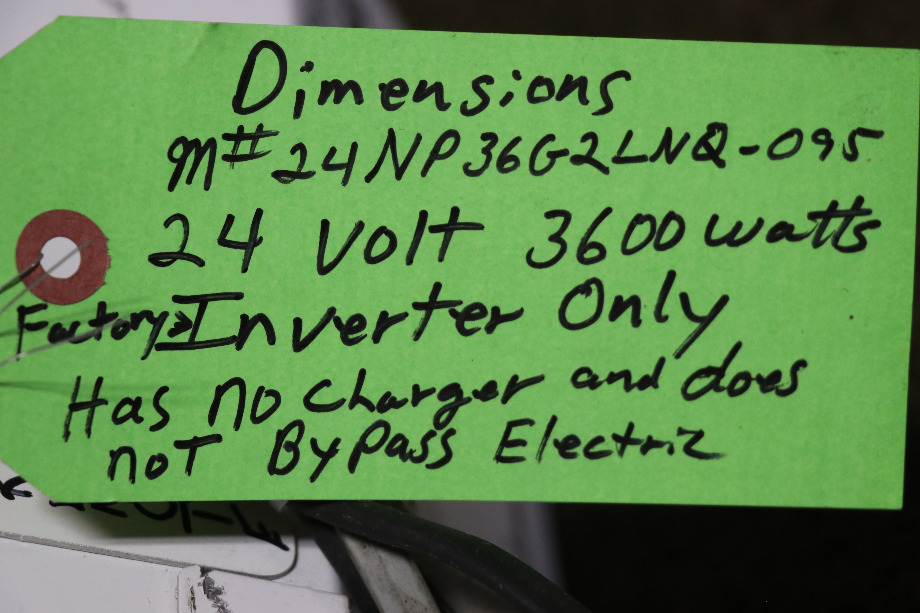 Dimensions
M# 24NP36G2LNQ-095
24 Volt 3600 watts
Factory> Inverter Only
Has no charger and does
not ByPass Electric